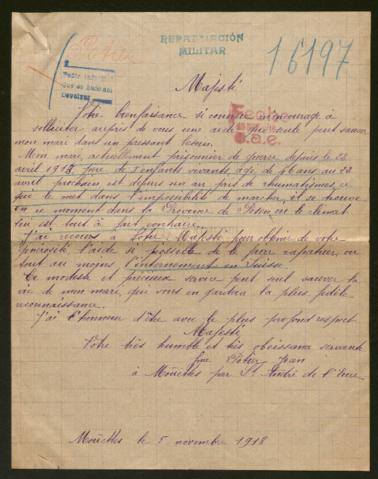 REPATRIACIÓN
MILITAR
16197
Majesté
Votre bienfaisance si connue m'encourage à
solliciter auprès de vous une aide qui seule peut sauver
mon mari dans un pressant besoin.
Mon mari, actuellement prisonnier de guerre depuis le 22
avril 1915, père de 7 enfants vivants âgé de 46 ans au 22
avril prochain est depuis un an pris de rhumatismes, ce
qui le met dans l'impossibilité de marcher, et se trouve
en ce moment dans la Province de Posen, où le climat
lui est tout à fait contraire.
J'ai recours à Votre Majesté pour obtenir de votre
générosité l'aide si possible de le faire rapatrier ou
tout au moins l'internement en Suisse.
Ce modeste et précieux service peut seul sauver la
vie de mon mari, qui vous en gardera la plus fidèle
reconnaissance.
J'ai l'honneur d'être avec le plus profond respect
Majesté
Votre très humble et très obéissante servante
Jean
à par St André de l'Eure
le 5 novembre 1918